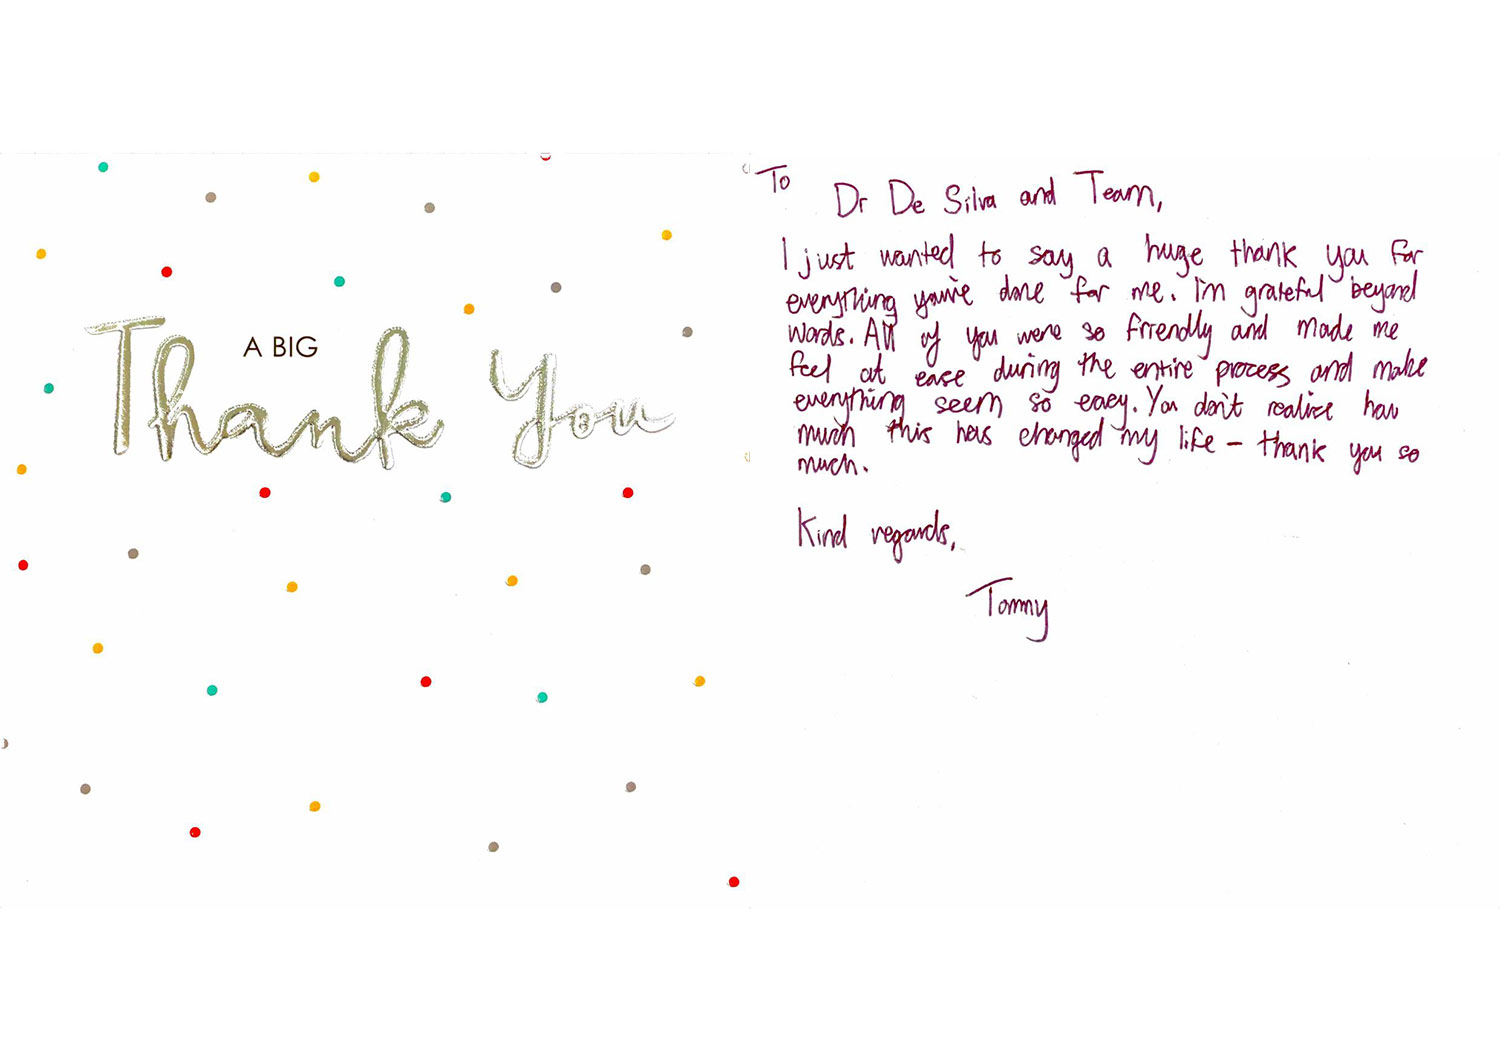 A BIG
Thank You
To
Dr De Silva and Team,
I just wanted to say a huge thank you for
everything you've done for me. I'm grateful beyond
words. All of you were so friendly and made me
feel at ease during the entire process and make
everything seem so easy. You don't realize how
much this has changed my life – thank you so
much.
Kind regards,
Tommy